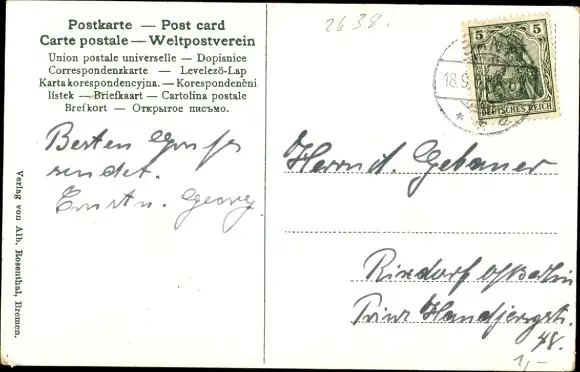 Postkarte — Post card
Carte postale — Weltpostverein
Union postale universelle — Dopisnice
Correspondenzkarte — Levelező-Lap
Karta korespondencyjna. — Korespondenční
lístek — Briefkaart — Cartolina postale
Brefkort — Открытое письмо.
2638.
5 5
DEUTSCHES REICH
18.9.
Besten Gruß
sendet.
Ernst u. Georg
Verlag von Alb. Rosenthal, Bremen.
Herrn A. Gebauer
Rixdorf b/Berlin
Prinz Handjerystr.
48.
1,-